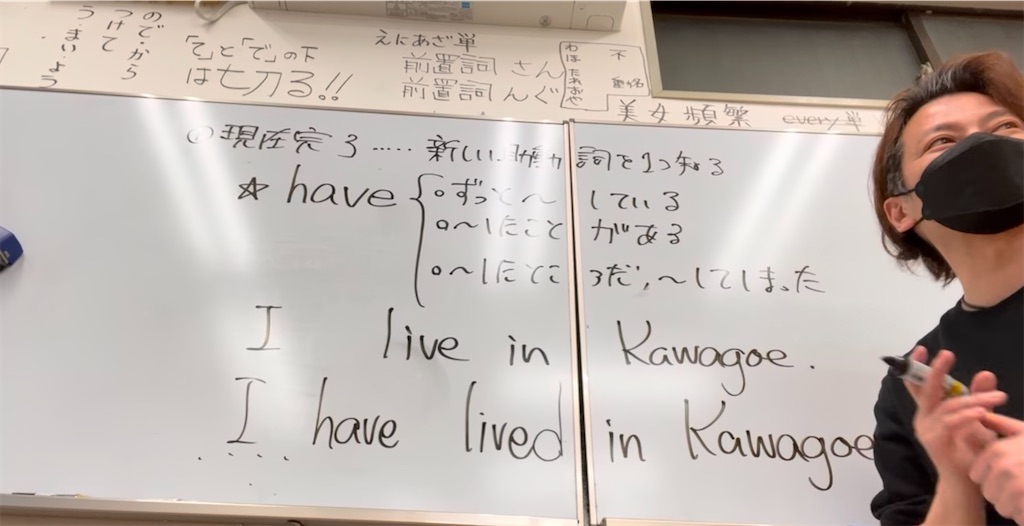 ので・から
つけて
うまいよう
「て」と「で」の下
は七刀る!!
えにあざ単
前置詞 さん
前置詞 んぐ
わはたれおや
不
美女頻繁
every単
①現在完了……新しい助動詞を1つ知る
☆have
○ずっと〜している
○〜したことがある
○〜したところだ,〜してしまった
I live in Kawagoe.
I have lived in Kawagoe